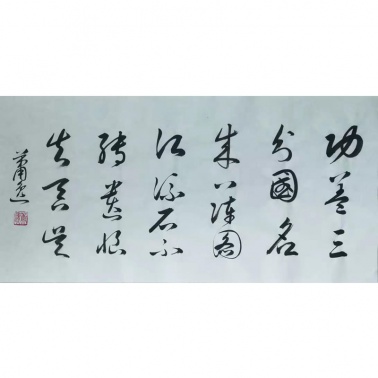 功蓋三
分國名
成八陣圖
江流石不
轉遺恨
失吞吳